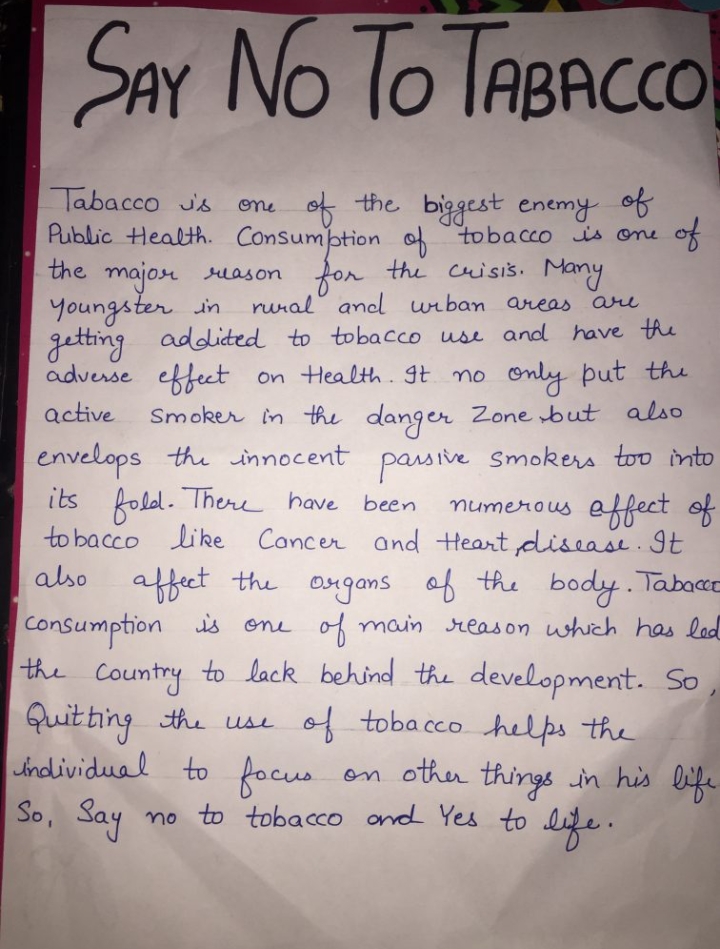 SAY NO TO TABACCO
Tabacco is one of the biggest enemy of
Public Health. Consumption of tobacco is one of
the major reason for the crisis. Many
youngster in rural and urban areas are
getting addicted to tobacco use and have the
adverse effect on Health. It no only put the
active smoker in the danger zone but also
envelops the innocent passive smokers too into
its fold. There have been numerous affect of
tobacco like Cancer and Heart disease. It
also affect the organs of the body. Tabacco
consumption is one of main reason which has led
the country to lack behind the development. So,
Quitting the use of tobacco helps the
individual to focus on other things in his life
So, Say no to tobacco and Yes to life.